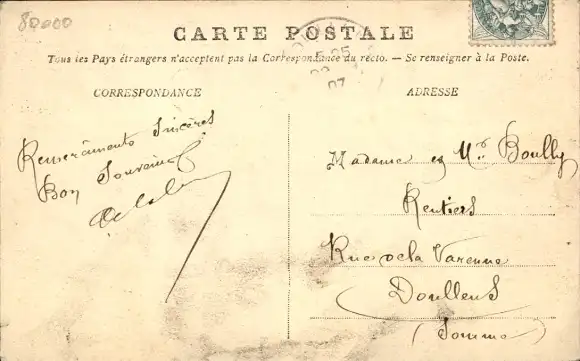 80000
CARTE POSTALE
Tous les Pays étrangers n'acceptent pas la Correspondance au recto. — Se renseigner à la Poste.
CORRESPONDANCE
Remerciments Sincères
Bon Souvenir
ADRESSE
Madame et Mr Boully
Rentiers
Rue de la Varenne
Doullens
(Somme)